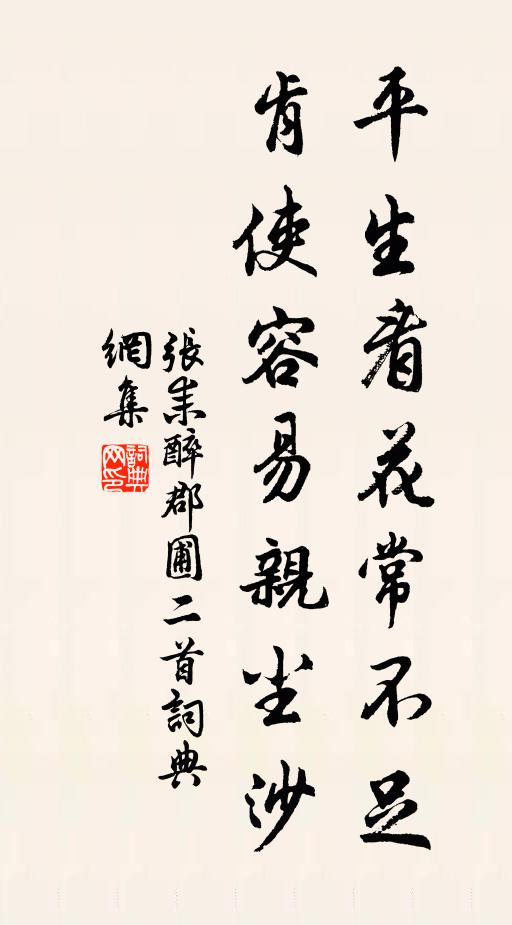 平生看花常不足
肯使容易親尘沙
張耒醉郡圃二首詞典
網集
詞典
网印